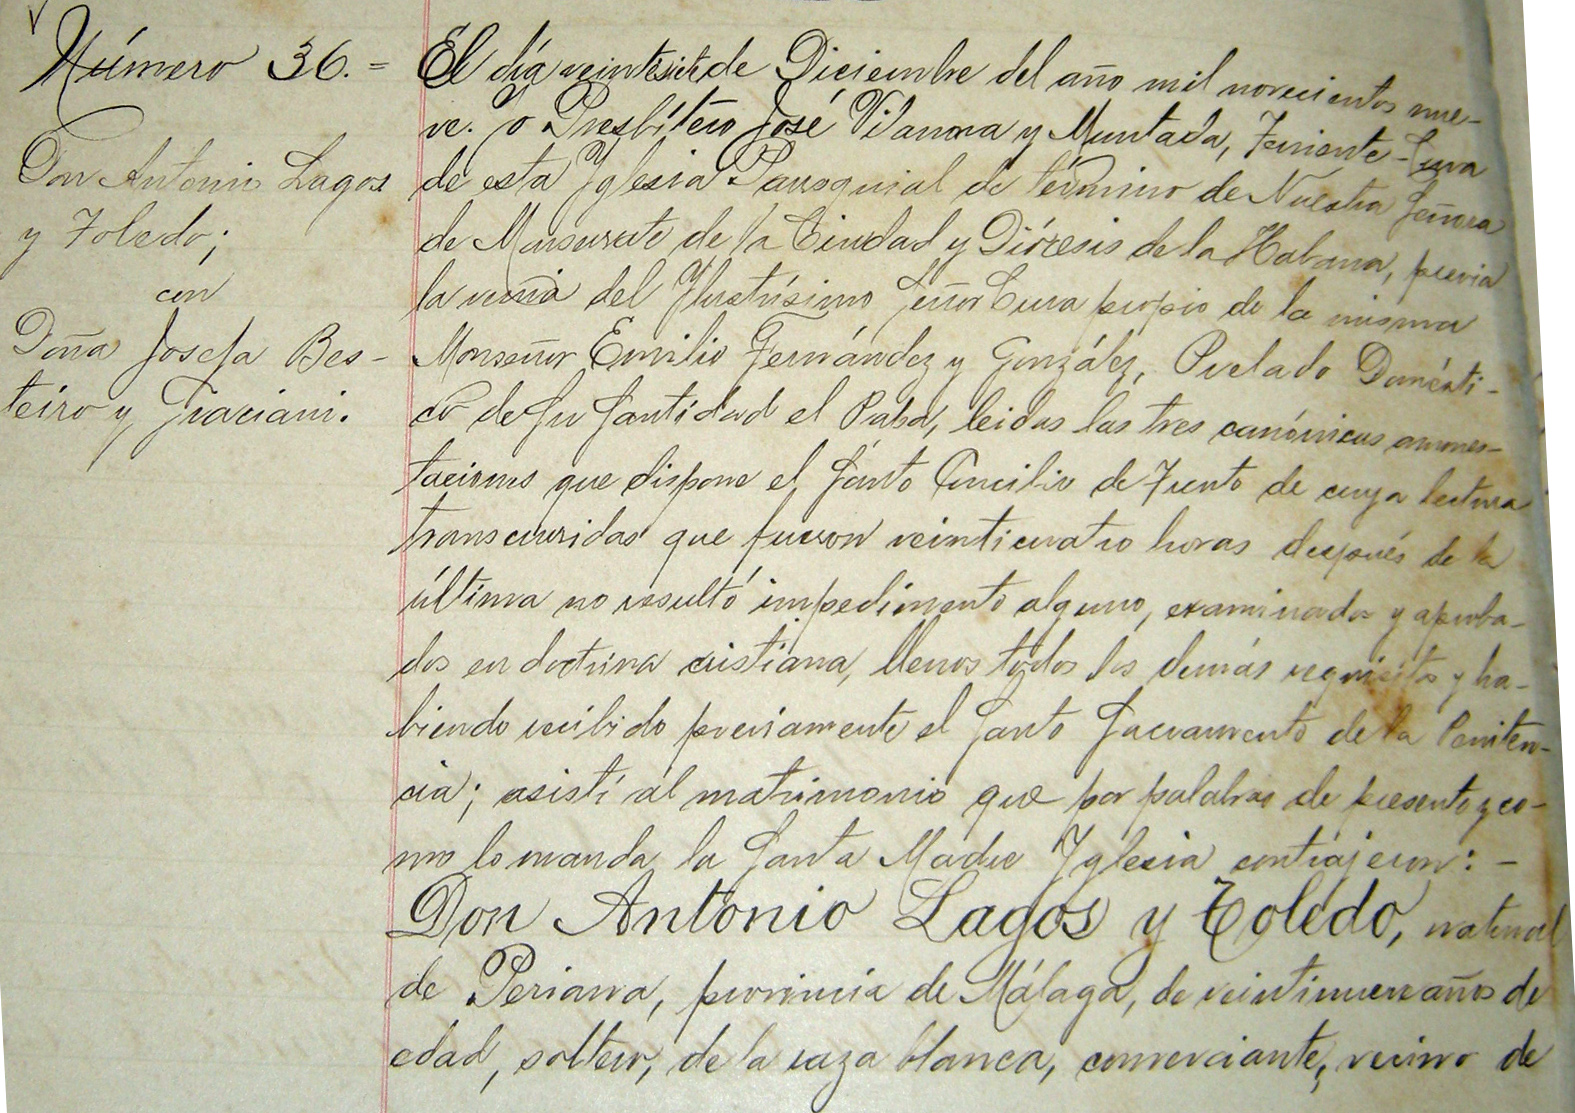 Número 36.=
Don Antonio Lagos
y Toledo;
con
Doña Josefa Bes-
teiro y Graciani.
El día veintesiete de Diciembre del año mil novecientos nue-
ve. Yo Presbítero José Vilanova y Muntada, Teniente-Cura
de esta Yglesia Parroquial de término de Nuestra Señora
de Monserrate de la Ciudad y Diócesis de la Habana, previa
la venia del Ylustrísimo Señor Cura propio de la misma
Monseñor Emilio Fernández y González, Prelado Domésti-
co de Su Santidad el Papa, leidas las tres canónicas amones-
taciones que dispone el Santo Concilio de Trento de cuya lectura
transcurridas que fueron veinticuatro horas después de la
última no resultó impedimento alguno, examinados y aproba-
dos en doctrina cristiana, llenos todos los demás requisitos y ha-
biendo recibido previamente el Santo Sacramento de la Peniten-
cia; asistí al matrimonio que por palabras de presente y co-
mo lo manda la Santa Madre Yglesia contrajeron: -
Don Antonio Lagos y Toledo, natural
de Periana, provincia de Málaga, de veintinueve años de
edad, soltero, de la raza blanca, comerciante, vecino de